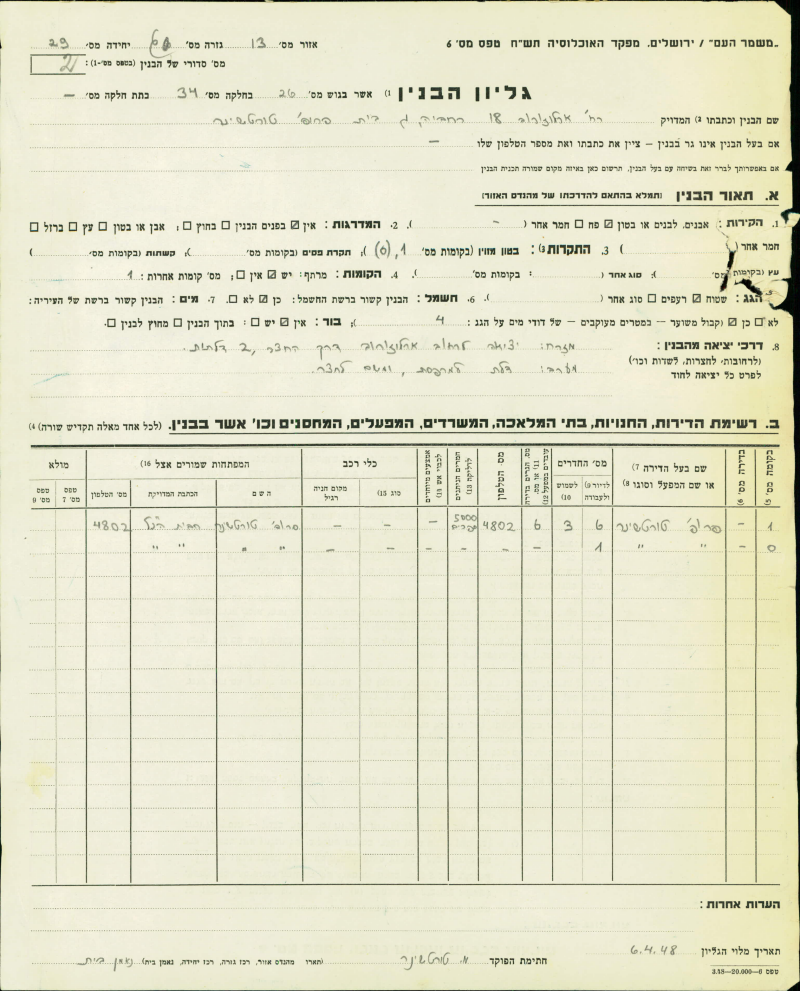 „משמר העם" / ירושלים. מפקד האוכלוסיה תש"ח טפס מס' 6
אזור מס' 13 גזרה מס' יחידה מס' 29
מס' סדורי של הבנין (בטפס מס'-1): 2
גליון הבנין (1 אשר בגוש מס' 26 בחלקה מס' 34 כתת חלקה מס' –
שם הבנין וכתבתו (2 המדויק רח' ארלוזורוב 18 רחביה ג בית פרופ' טורטשינר
אם בעל הבנין אינו גר בבנין – ציין את כתבתו ואת מספר הטלפון שלו –
אם באפשרותך לברר זאת בשיחה עם בעל הבנין, תרשום כאן באיזה מקום שמורה תכנית הבנין
א. תאור הבנין (תמלא בהתאם להדרכתו של מהנדס האזור)
1. הקירות: אבנים, לבנים או בטון ☑ פח ☐ חמר אחר ( – ). 2. המדרגות: אין ☑ בפנים הבנין ☐ בחוץ ☐; אבן או בטון ☐ עץ ☐ ברזל ☐
חמר אחר ( ) 3. התקרות (3: בטון מזוין (בקומות מס' 1, (0)); תקרת פסים (בקומות מס' ); קשתות (בקומות מס' )
עץ (בקומות מס' ); סוג אחד ( : בקומות מס' ). 4. הקומות: מרתף: יש ☑ אין ☐; מס' קומות אחרות: 1
הגג: שטוח ☑ רעפים ☐ סוג אחר ( ). 6. חשמל: הבנין קשור ברשת החשמל: כן ☑ לא ☐. 7. מים: הבנין קשור ברשת של העיריה:
לא ☐ כן ☑ (קבול משוער – במטרים מעוקבים – של דודי מים על הגג: 4 ); בור: אין ☑ יש ☐: בתוך הבנין ☐ מחוץ לבנין ☐.
8. דרכי יציאה מהבנין: מזרח: יציאה לרחוב ארלוזורוב דרך החצר, 2 דלתות.
(לרחובות, לחצרות, לשדות וכו')
לפרט כל יציאה לחוד מערב: דלת למרפסת, ומשם לחצר.
ב. רשימת הדירות, החנויות, בתי המלאכה, המשרדים, המפעלים, המחסנים וכו' אשר בבנין. (לכל אחד מאלה תקדיש שורה) (4
בקומה מס' (5 בדירה מס' (6 שם בעל הדירה (7 או שם המפעל וסוגו (8 מס' החדרים לדיור (9 ולעבודה לשמוש (10 מס. הגרים בדירה (11 או מס. עובדים במפעל (12 מס' הטלפון חמרים הניתנים לדליקה (13 אמצעים מיוחדים לכבוי אש (14 כלי רכב סוג (15 מקום חניה רגיל המפתחות שמורים אצל (16 השם הכתבת המדויקת מס' הטלפון מולא טפס מס' 7 טפס מס' 9
1 – פרופ' טורטשינר 6 3 6 4802 5000 ספרים – – – פרופ' טורטשינר הבית הנ"ל 4802
0 – " " 1 – – – – – – " " " "
הערות אחרות:
תאריך מלוי הגליון 6.4.48 חתימת הפוקד נ. טורטשינר (תארו מהנדס אזור, רכז גזרה, רכז יחידה, נאמן בית) נאמן בית
טפס 6–20.000–3.18